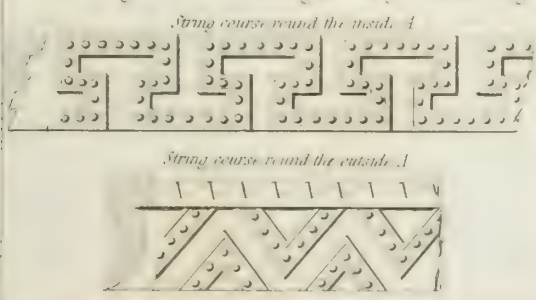 String course round the inside A
String course round the outside A